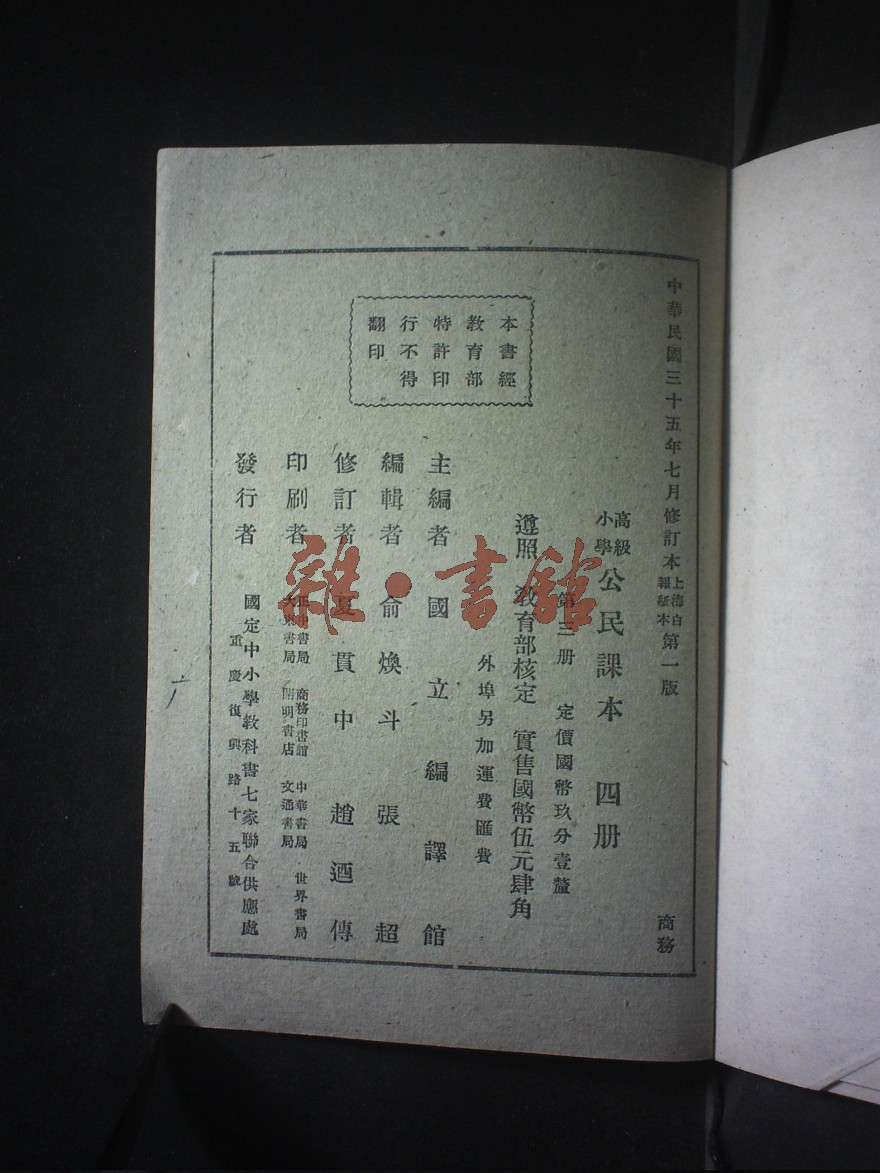 中華民國三十五年七月修訂本上海白報紙本第一版
商務
高級小學公民課本 四册
第三册 定價國幣玖分壹釐
遵照 教育部核定 實售國幣伍元肆角
外埠另加運費匯費
本書經
教育部
特許印
行不得
翻印
主編者 國立編譯館
編輯者 俞煥斗 張超
修訂者 夏貫中 趙迺傳
印刷者 正中書局 商務印書館 中華書局 世界書局
大東書局 開明書店 文通書局
發行者 國定中小學教科書七家聯合供應處
重慶復興路十五號
雜·書館